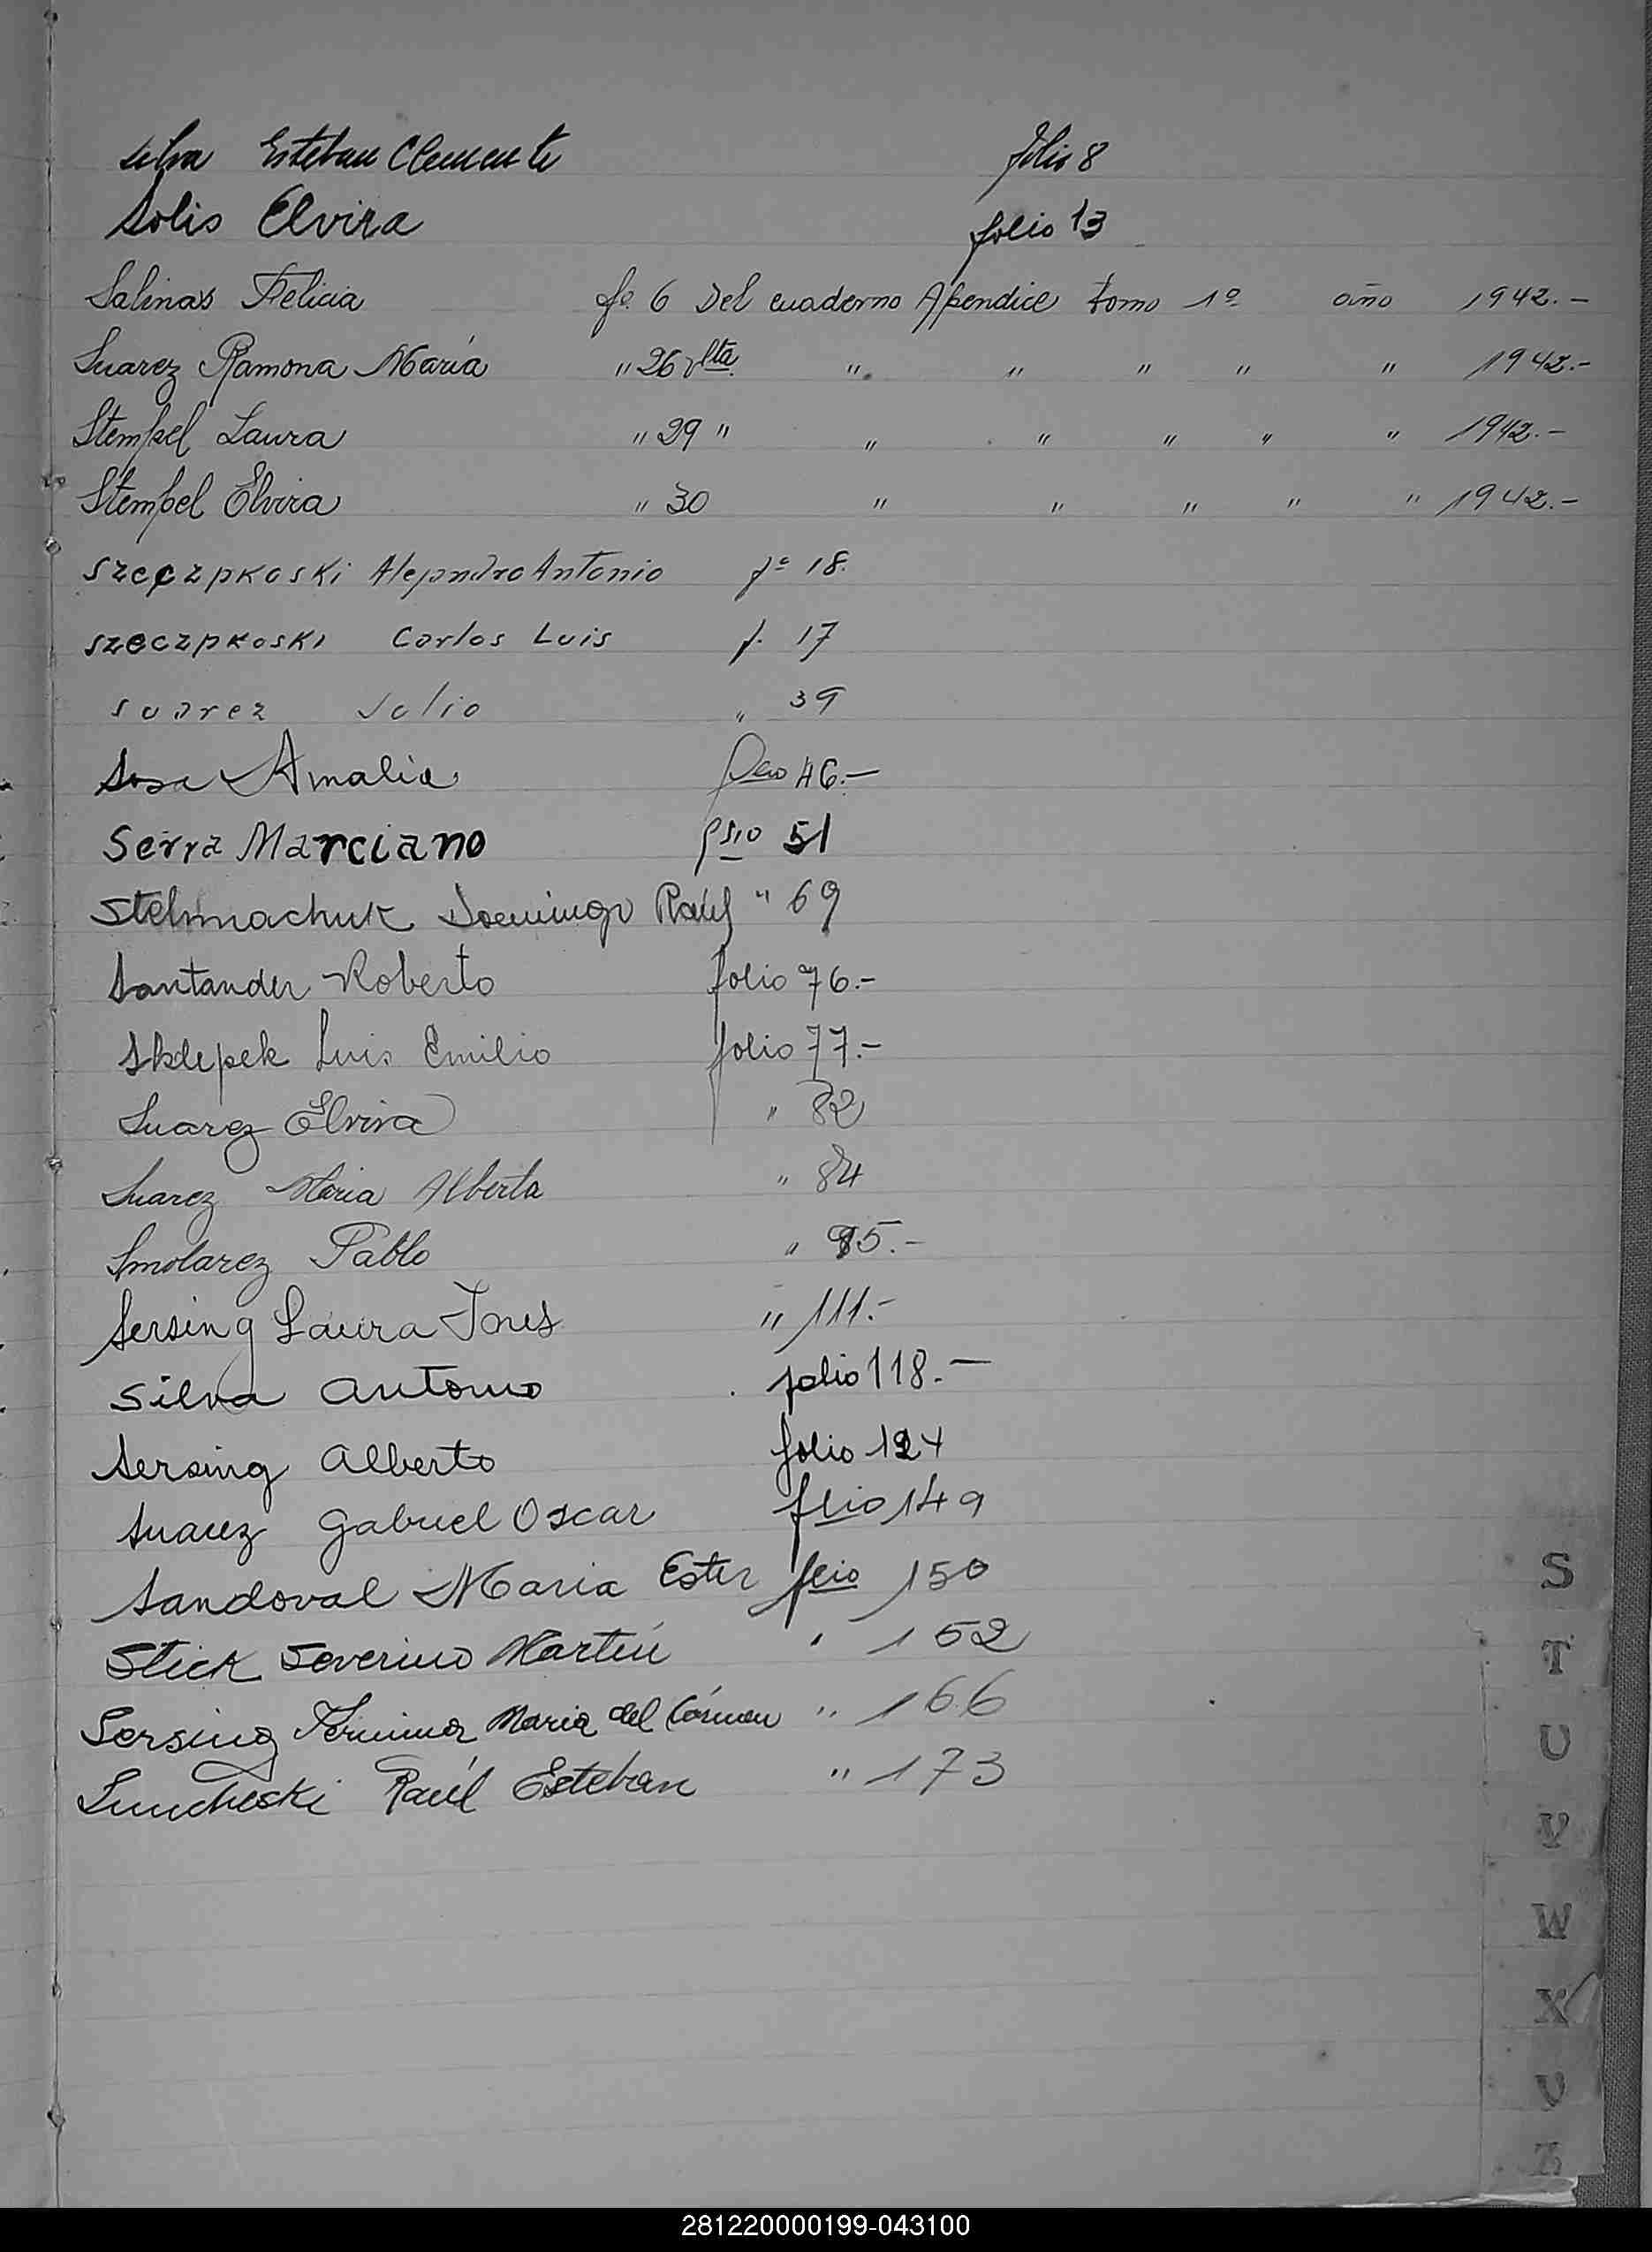 Silva Esteban Clemente folio 8
Solis Elvira folio 13
Salinas Felicia fo. 6 Del cuaderno Apendice tomo 1º año 1942.-
Suarez Ramona María " 26 vlta. " " " " " 1942.-
Stempel Laura " 29 " " " " " " 1942.-
Stempel Elvira " 30 " " " " " 1942.-
Szeczpkoski Alejandro Antonio fº 18.
Szeczpkoski Carlos Luis f. 17
Suarez Julio " 39
Sosa Amalia 46.-
Serra Marciano 51
Stelmachuk Domingo Raúl " 69
Santander Roberto folio 76.-
Sklepek Luis Emilio folio 77.-
Suarez Elvira " 82
Suarez Maria Alberta " 84
Smolarez Pablo " 95.-
Sersing Laura Ines " 111.-
Silva Antonio folio 118.-
Sersing Alberto folio 124
Suarez Gabriel Oscar flio 149
Sandoval Maria Ester flio 150
Stick Severino Martín " 152
Sersing Maria del Cármen " 166
Raúl Esteban " 173
S
T
U
V
W
X
Y
Z
281220000199-043100